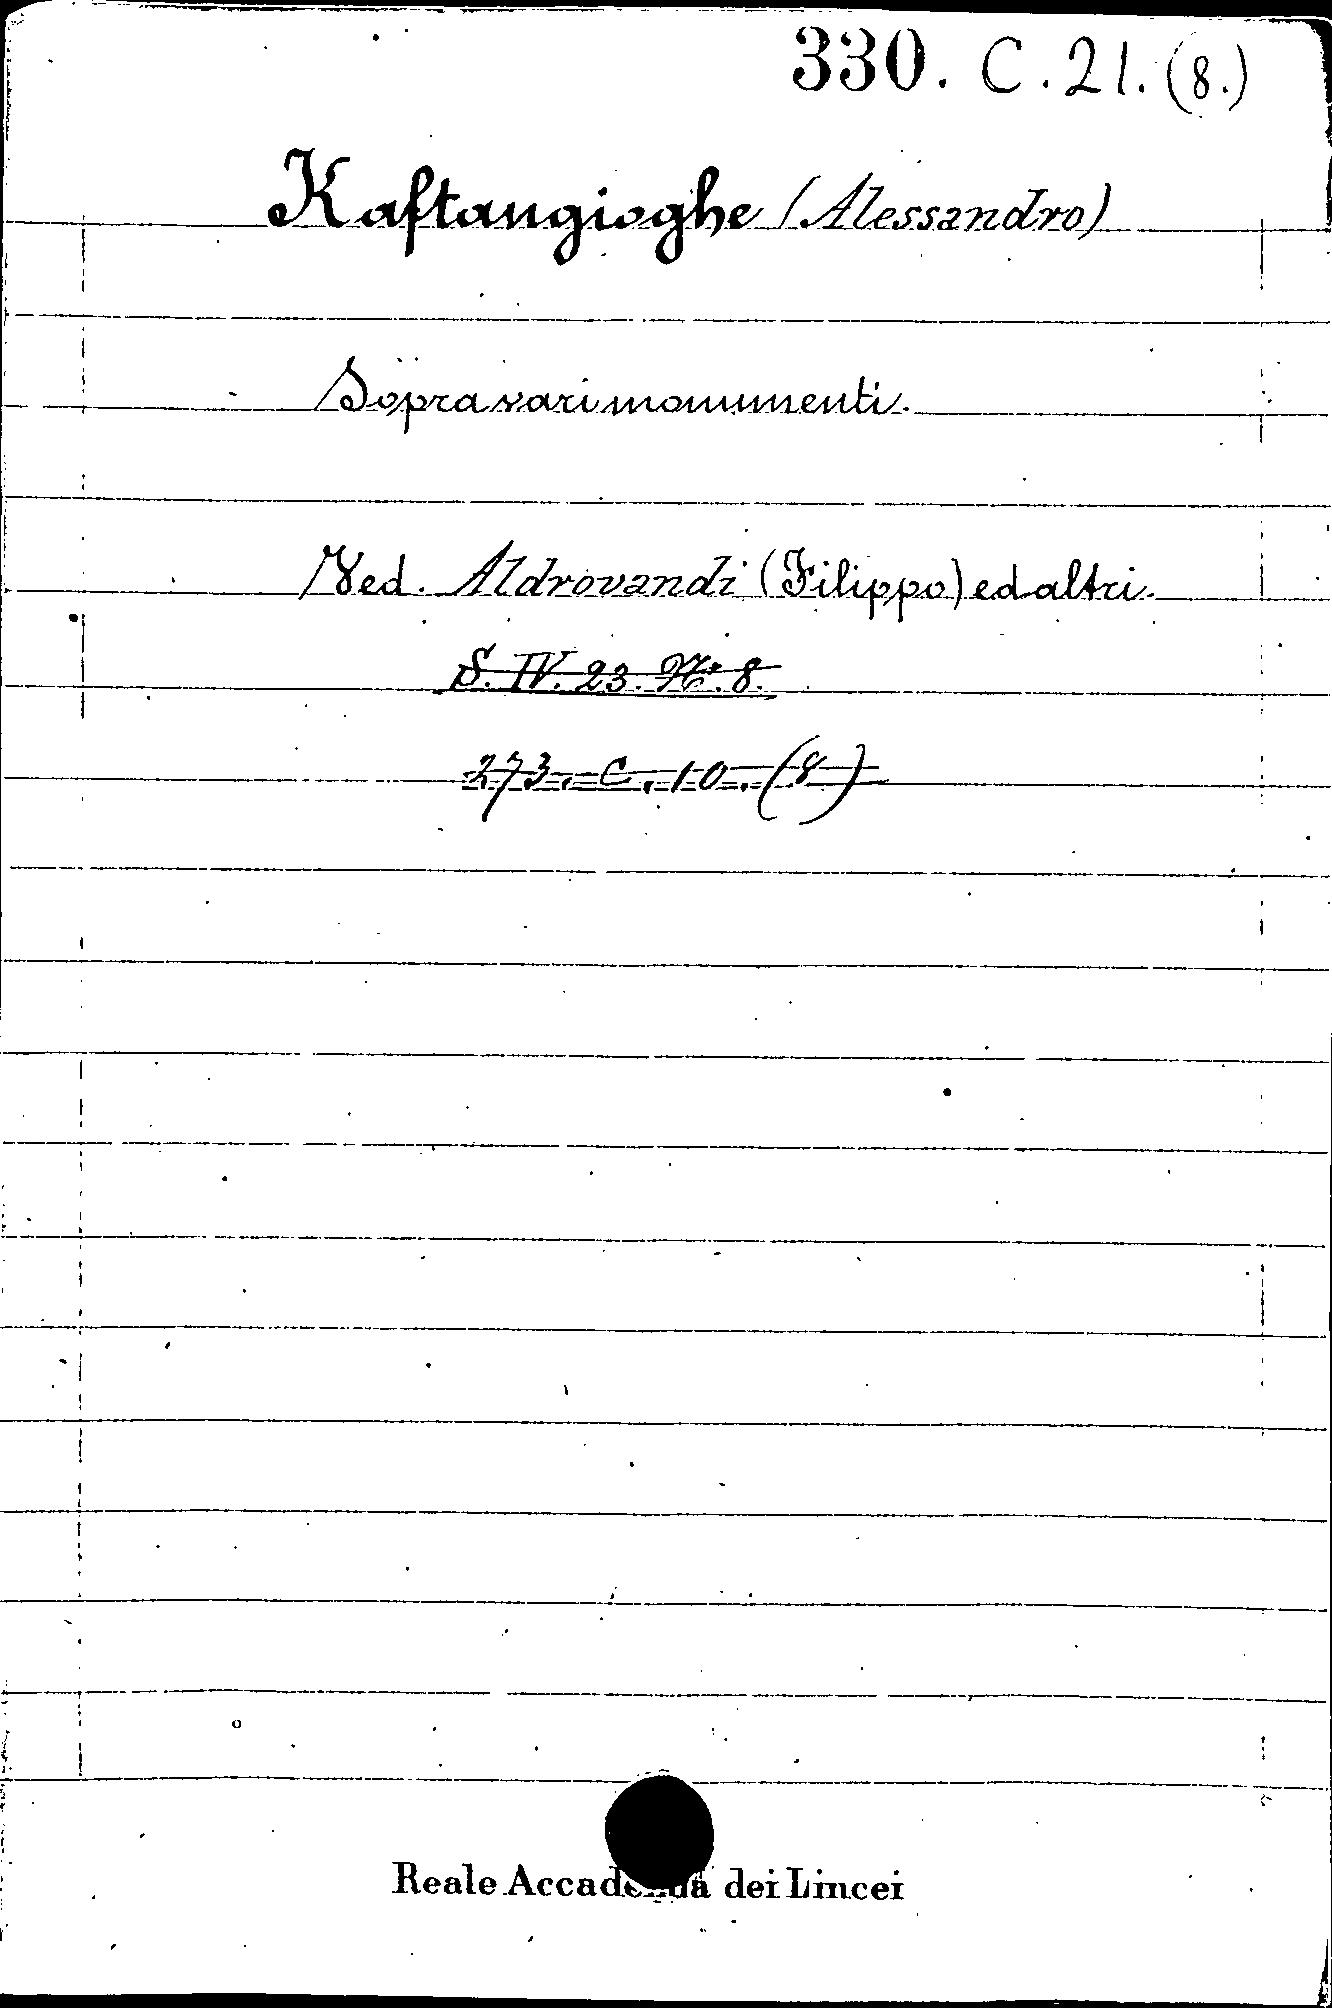 330. C. 21. (8.)
Kaftangioghe (Alessandro)
Sopra vari monumenti.
Ved. Aldrovandi (Filippo) ed altri.
S. IV. 23. N. 8.
273. C. 10. (8)
Reale Accademia dei Lincei